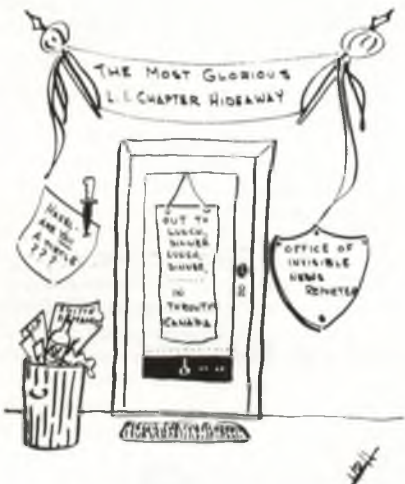 THE MOST GLORIOUS
L.I. CHAPTER HIDEAWAY
HAZEL-
ARE YOU
A TURTLE
???
OUT TO
LUNCH,
DINNER
LUNCH,
DINNER,
IN
TORONTO
CANADA
OFFICE OF
INVISIBLE
NEWS
REPORTER